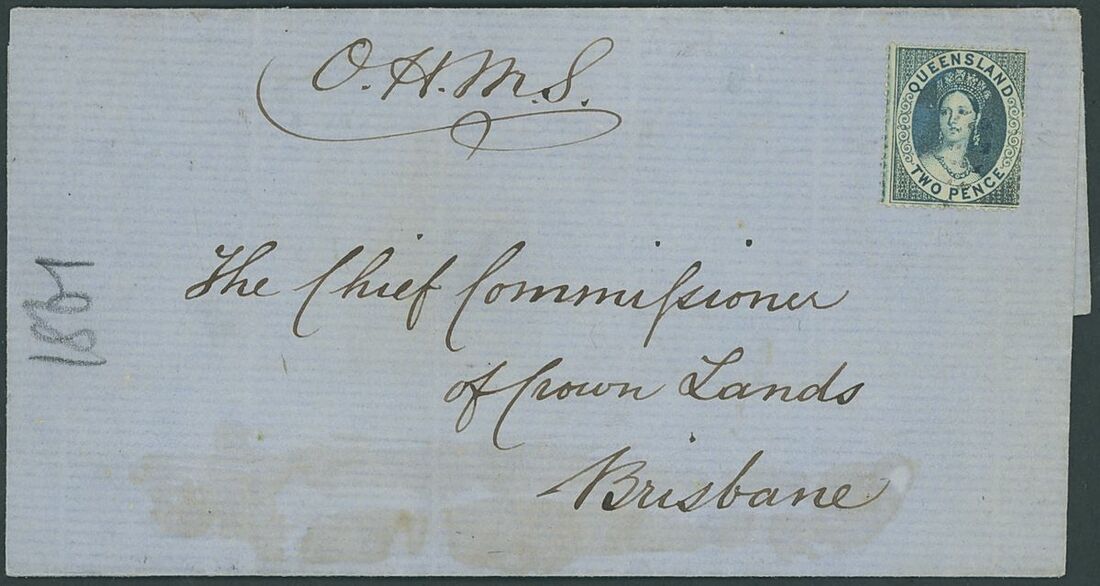 O.H.M.S.
QUEENSLAND
TWO PENCE
The Chief Commiſsioner
of Crown Lands
Brisbane